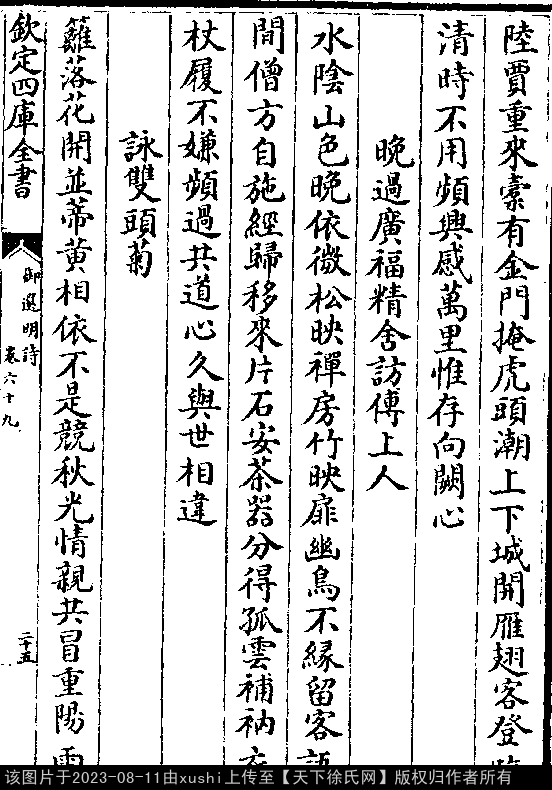 陸賈重來橐有金門掩虎頭潮上下城開雁翅客登
清時不用頻興感萬里惟存向闕心
晚過廣福精舍訪傳上人
水陰山色晚依微松映禪房竹映扉幽鳥不緣留客語
間僧方自施經歸移來片石安茶器分得孤雲補衲衣
杖履不嫌頻過共道心久與世相違
詠雙頭菊
籬落花開並蒂黄相依不是競秋光情親共冒重陽雨
欽定四庫全書
御選明詩
卷六十九
二十五
该图片于2023-08-11由xushi上传至【天下徐氏网】版权归作者所有